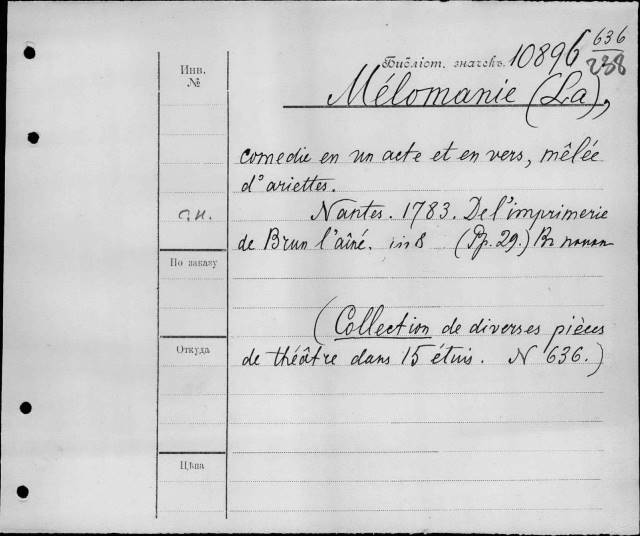 Библіот. значекъ. 10896 636
238
Инв.
№
Mélomanie (La),
comedie en un acte et en vers, mêlée
d'ariettes.
Nantes. 1783. De l'imprimerie
de Brun l'aîné. in 8 (Pp. 29.) Въ папкѣ
По заказу
(Collection de diverses pièces
Откуда
de théâtre dans 15 étuis. N 636.)
Цѣна